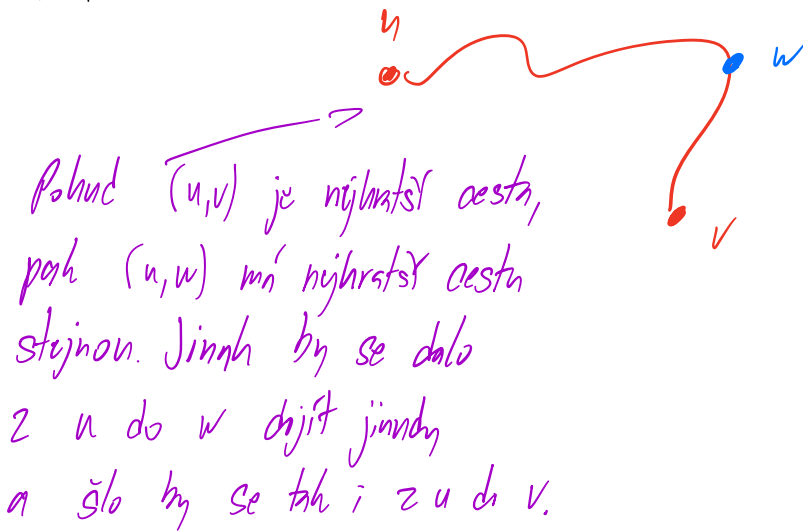 u
w
Pokud (u,v) je nejkratší cesta,
v
pak (u,w) má nejkratší cestu
stejnou. Jinak by se dalo
z u do w dojít jinudy
a šlo by se tak i z u do v.